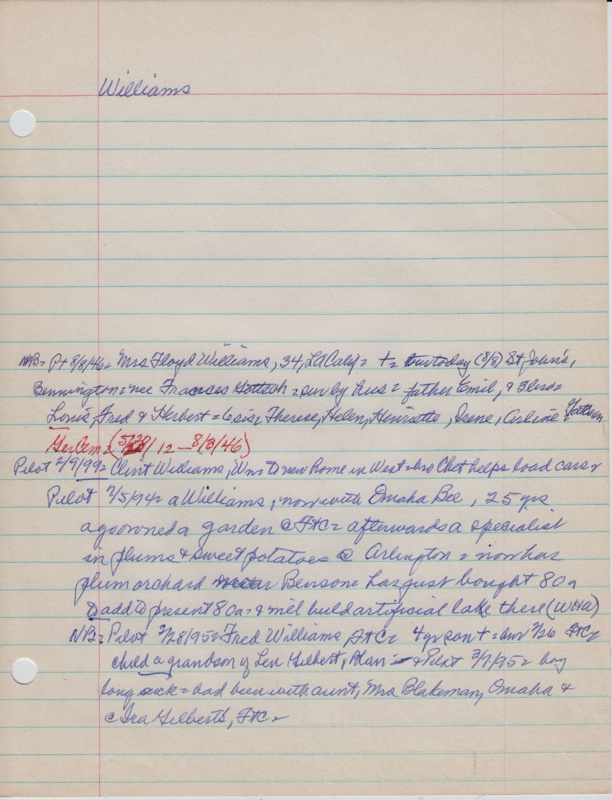 Williams
NB= P+ 8/8/46= "Mrs Floyd Williams", 34, LA Calif= += bur today (8/8) St John's,
Bennington= nee Frances = sur by hus= father Emil, & 3 bros=
Louie, Fred & Herbert= 6 sis, Therese, Helen, Henriette, Irene, Arline & Kathleen
Ger Cem= (5/29/12 - 8/3/46)
Pilot 2/9/99= Clint Williams, Wn= to new home in West= bro Chet helps load cars=
Pilot 2/5/94= a Williams, now with Omaha Bee, 25 yrs
ago owned a garden @ FtC= afterwards a specialist
in plums & sweet potatoes @ Arlington= now has
plum orchard near Benson= has just bought 80a
to add to present 80a= & will build artificial lake there (WHW)
NB= Pilot 2/28/95= Fred Williams, FtC= 4 yr son += bur 2/26 FtC=
child a grandson of Levi Hilbert, Blair= & Pilot 3/7/95= boy
long sick= had been with aunt, Mrs Blakeman, Omaha &
@ Ira Gilbert's, FtC=